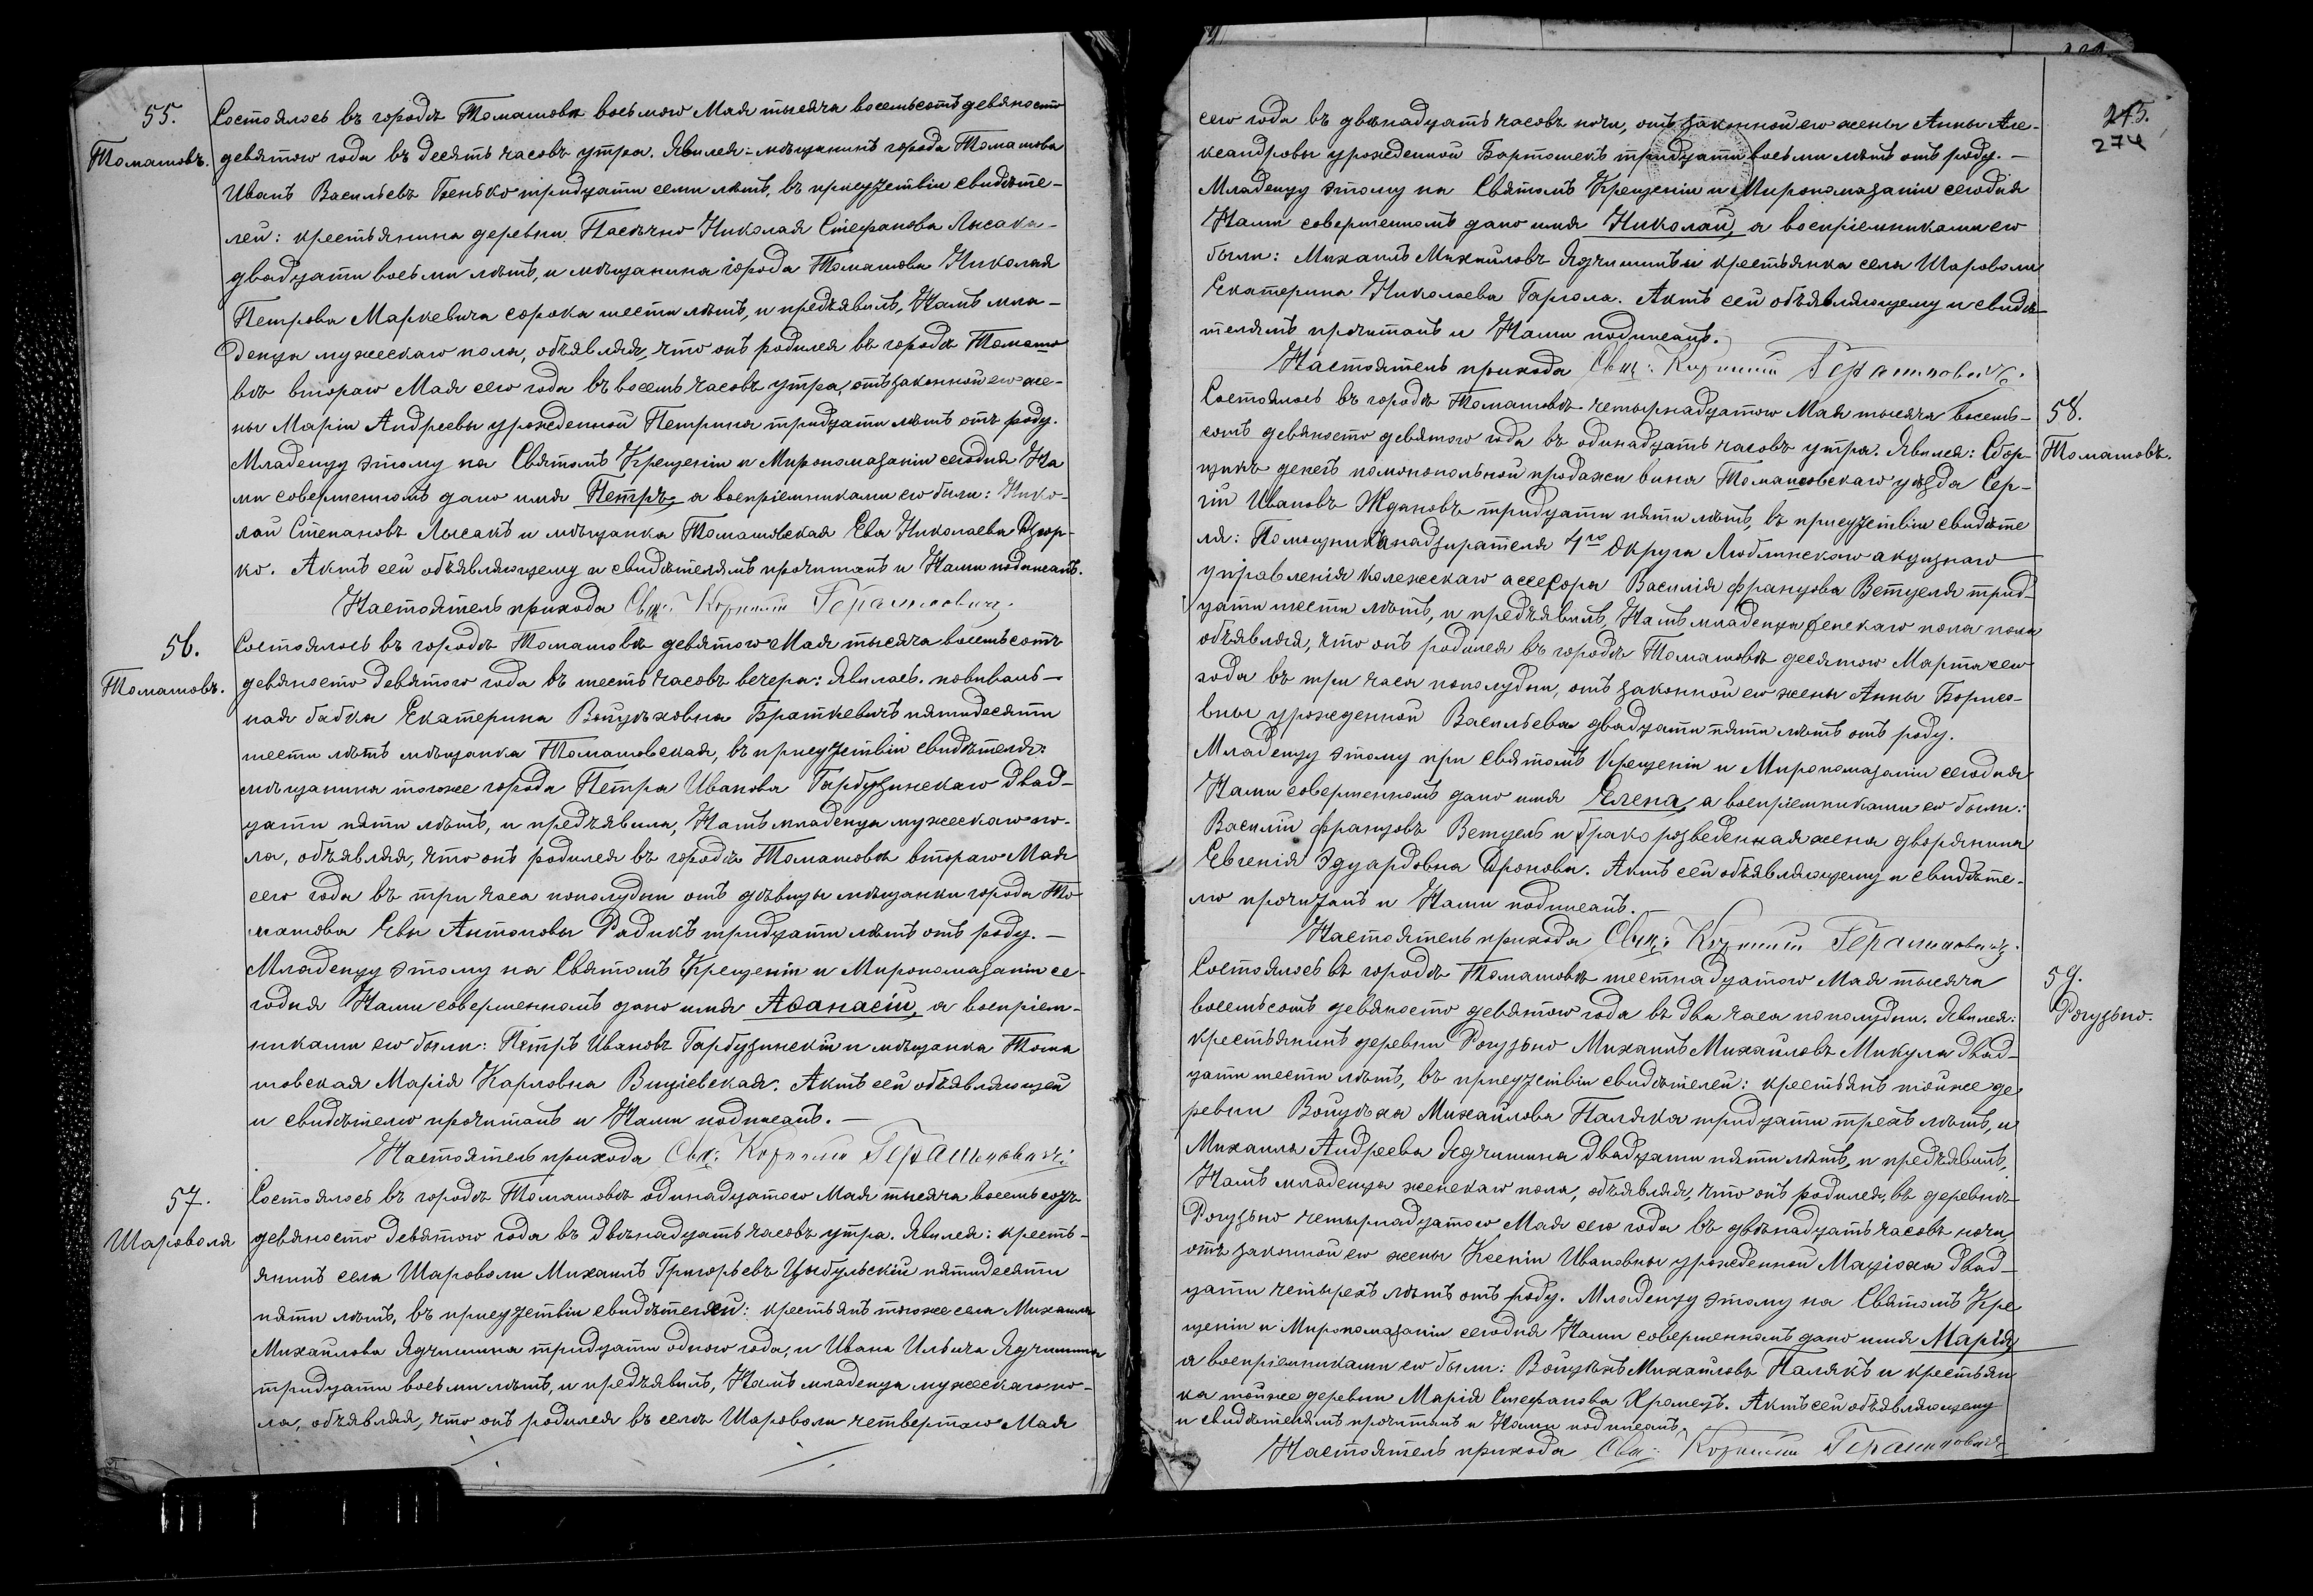 55.
Томашовъ.
Состоялось въ городѣ Томашовѣ восьмого Мая тысяча восемьсотъ девяносто
девятого года въ десять часовъ утра. Явился: мѣщанинъ города Томашова
Иванъ Васильевъ Бенько тридцати семи лѣтъ, въ присутствіи свидѣте-
лей: крестьянина деревни Пасѣчно Николая Стефанова Лысака
двадцати восьми лѣтъ, и мѣщанина города Томашова Николая
Петрова Маркевича сорока шести лѣтъ, и предъявилъ, Намъ мла-
денца мужескаго пола, объявляя, что онъ родился въ городѣ Томашо
вѣ второго Мая сего года въ восемь часовъ утра, отъ законной его же-
ны Маріи Андреевы урожденной Петрина тридцати лѣтъ отъ роду.
Младенцу этому на Святомъ Крещеніи и Миропомазаніи сегодня На
ми совершенномъ дано имя Петръ, а воспріемниками его были: Нико-
лай Степановъ Лысакъ и мѣщанка Томашовская Ева Николаева
ко. Актъ сей объявляющему и свидѣтелямъ прочитанъ и Нами подписанъ.
Настоятель прихода Свщ: Корнилій Герасимовичъ.
56.
Томашовъ.
Состоялось въ городѣ Томашовѣ девятого Мая тысяча восемьсотъ
девяносто девятого года въ шесть часовъ вечера: Явилась. повиваль-
ная бабка Екатерина Войцѣховна Браткевичъ пятидесяти
шести лѣтъ мѣщанка Томашовская, въ присутствіи свидѣтеля:
мѣщанина тогоже города Петра Иванова Гарбузинскаго двад-
цати пяти лѣтъ, и предъявила, Намъ младенца мужескаго по-
ла, объявляя, что онъ родился въ городѣ Томашовѣ второго Мая
сего года въ три часа пополудни отъ дѣвицы мѣщанки города То-
машова Евы Антоновы Радикъ тридцати лѣтъ отъ роду. —
Младенцу этому на Святомъ Крещеніи и Миропомазаніи се-
годня Нами совершенномъ дано имя Аѳанасій, а воспріем-
никами его были: Петръ Ивановъ Гарбузинскій и мѣщанка Тома
шовская Марія Карловна Вицiевская. Актъ сей объявляющей
и свидѣтелю прочитанъ и Нами подписанъ. —
Настоятель прихода Свщ: Корнилій Герасимовичъ
57.
Шароволя
Состоялось въ городѣ Томашовѣ одинадцатого Мая тысяча восемьсотъ
девяносто девятого года въ двѣнадцать часовъ утра. Явился: кресть-
янинъ села Шароволи Михаилъ Григорьевъ Цыбульскій пятидесяти
пяти лѣтъ, въ присутствіи свидѣтелей: крестьянъ тогоже села Михаила
Михайлова Ядчишина тридцати одного года, и Ивана Ильича Ядчишина
тридцати восьми лѣтъ, и предъявилъ, Намъ младенца мужескаго по-
ла, объявляя, что онъ родился въ селѣ Шароволи четвертаго Мая
274
сего года въ двѣнадцать часовъ ночи, отъ законной его жены Анны Але-
ксандровы урожденной Бартошекъ тридцати восьми лѣтъ отъ роду. —
Младенцу этому на Святомъ Крещеніи и Миропомазаніи сегодня
Нами совершенномъ дано имя Николай, а воспріемниками его
были: Михаилъ Михайловъ Ядчишинъ и крестьянка села Шароволи
Екатерина Николаева Гаргола. Актъ сей объявляющему и свидѣ-
телямъ прочитанъ и Нами подписанъ.
Настоятель прихода Свщ: Корнилій Герасимовичъ.
58.
Томашовъ.
Состоялось въ городѣ Томашовѣ четырнадцатого Мая тысяча восемь-
сотъ девяносто девятого года въ одинадцать часовъ утра. Явился: Сбор-
щикъ денегъ помонопольной продажи вина Томашовскаго уѣзда Сер-
гій Ивановъ Ждановъ тридцати пяти лѣтъ, въ присутствіи свидѣте
ля: Помощника надзирателя 4го Округа Люблинскаго акцизнаго
управленія колежскаго ассесора Василія Францова Ветцеля трид-
цати шести лѣтъ, и предъявилъ, Намъ младенца женскаго пола пола
объявляя, что онъ родился въ городѣ Томашовѣ десятого Марта сего
года въ три часа пополудни, отъ законной его жены Анны Борисо-
вны урожденной Васильева двадцати пяти лѣтъ отъ роду.
Младенцу этому при святомъ Крещеніи и Миропомазаніи сегодня
Нами совершенномъ дано имя Елена, а воспріемниками ея были:
Василій Францовъ Ветцель и брако разведенная жена дворянина
Евгенія Эдуардовна Дронова. Актъ сей объявляющему и свидѣте-
лю прочитанъ и Нами подписанъ. —
Настоятель прихода Свщ: Корнилій Герасимовичъ.
59.
Рогузьно.
Состоялось въ городѣ Томашовѣ шестнадцатого Мая тысяча
восемьсотъ девяносто девятого года въ два часа пополудни. Явился:
крестьянинъ деревни Рогузьно Михаилъ Михайловъ Микула двад-
цати шести лѣтъ, въ присутствіи свидѣтелей: крестьянъ тойже де
ревни Войцѣха Михайлова Паляка тридцати трехъ лѣтъ, и
Михаила Андреева Ядчишина двадцати пяти лѣтъ, и предъявилъ,
Намъ младенца женскаго пола, объявляя, что онъ родился, въ деревнѣ
Рогузьно четырнадцатого Мая сего года въ двѣнадцать часовъ ночи,
отъ законной его жены Ксеніи Ивановны урожденной Мацюха двад-
цати четырехъ лѣтъ отъ роду. Младенцу этому на Святомъ Кре
щеніи и Миропомазаніи сегодня Нами совершенномъ дано имя Марія
а воспріемниками ея были: Войцѣхъ Михайловъ Палякъ и крестьян
ка тойже деревни Марія Стефанова Кромецъ. Актъ сей объявляющему
и свидѣтелямъ прочитанъ и Нами подписанъ.
Настоятель прихода Свщ: Корнилій Герасимовичъ